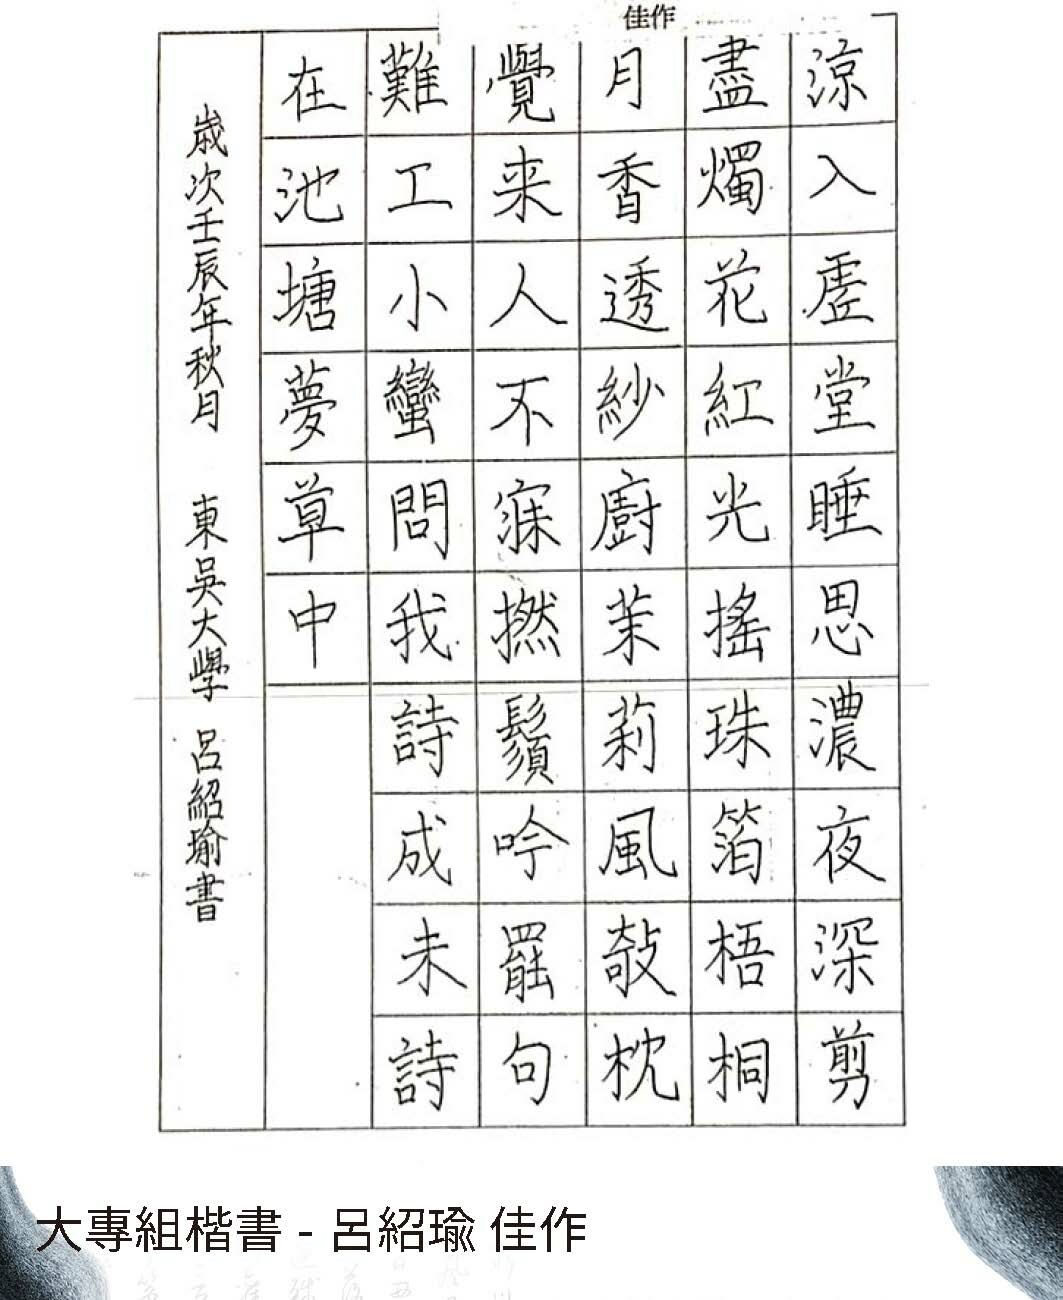 佳作
涼入虛堂睡思濃夜深剪
盡燭花紅光搖珠箔梧桐
月香透紗廚茉莉風敧枕
覺来人不寐撚鬚吟罷句
難工小蠻問我詩成未詩
在池塘夢草中
歲次壬辰年秋月 東吳大學 呂紹瑜書
大專組楷書 - 呂紹瑜 佳作